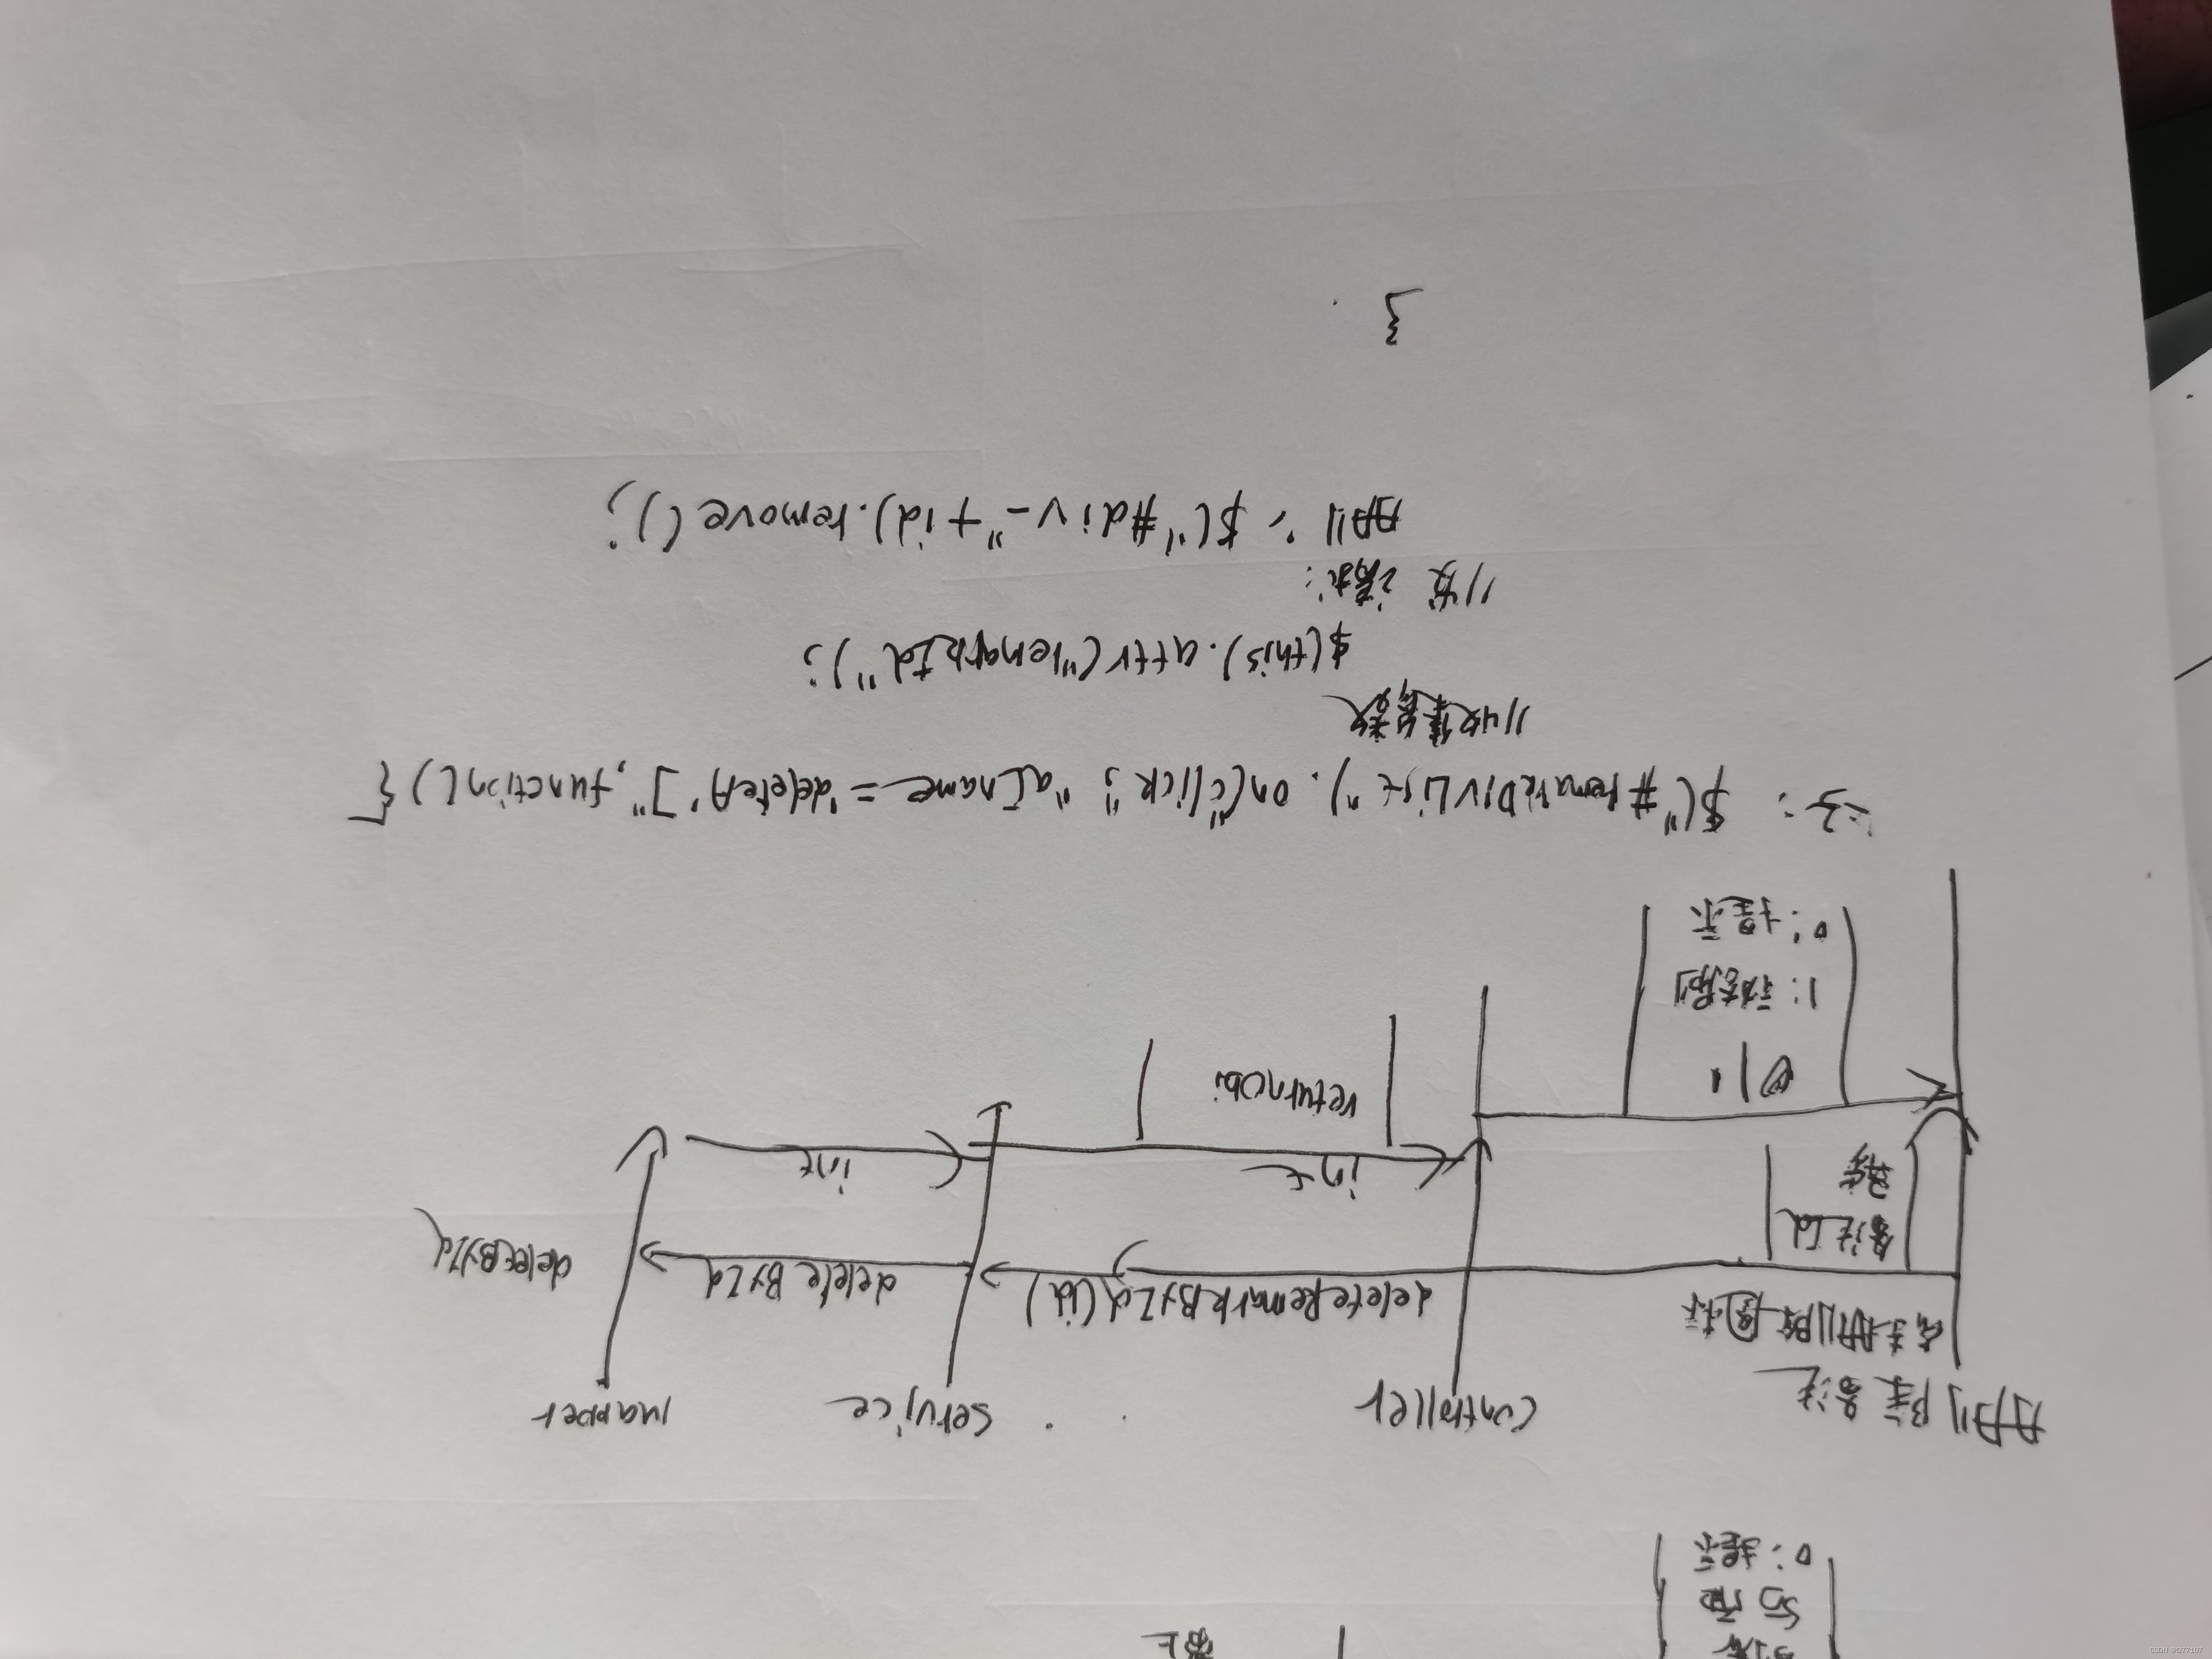 页面
0:提示
删除备注
controller
service
mapper
点击删除图标
deleteRemarkById(id)
deleteById
deleteById
备注id
int
int
returnObj
0|1
1:
0:提示
$("#remarkDivList").on("click","a[name='deleteA']",function(){
//收集参数
$(this).attr("remarkId");
//发请求:
删:$("#div-"+id).remove();
}
CSDN @D77107